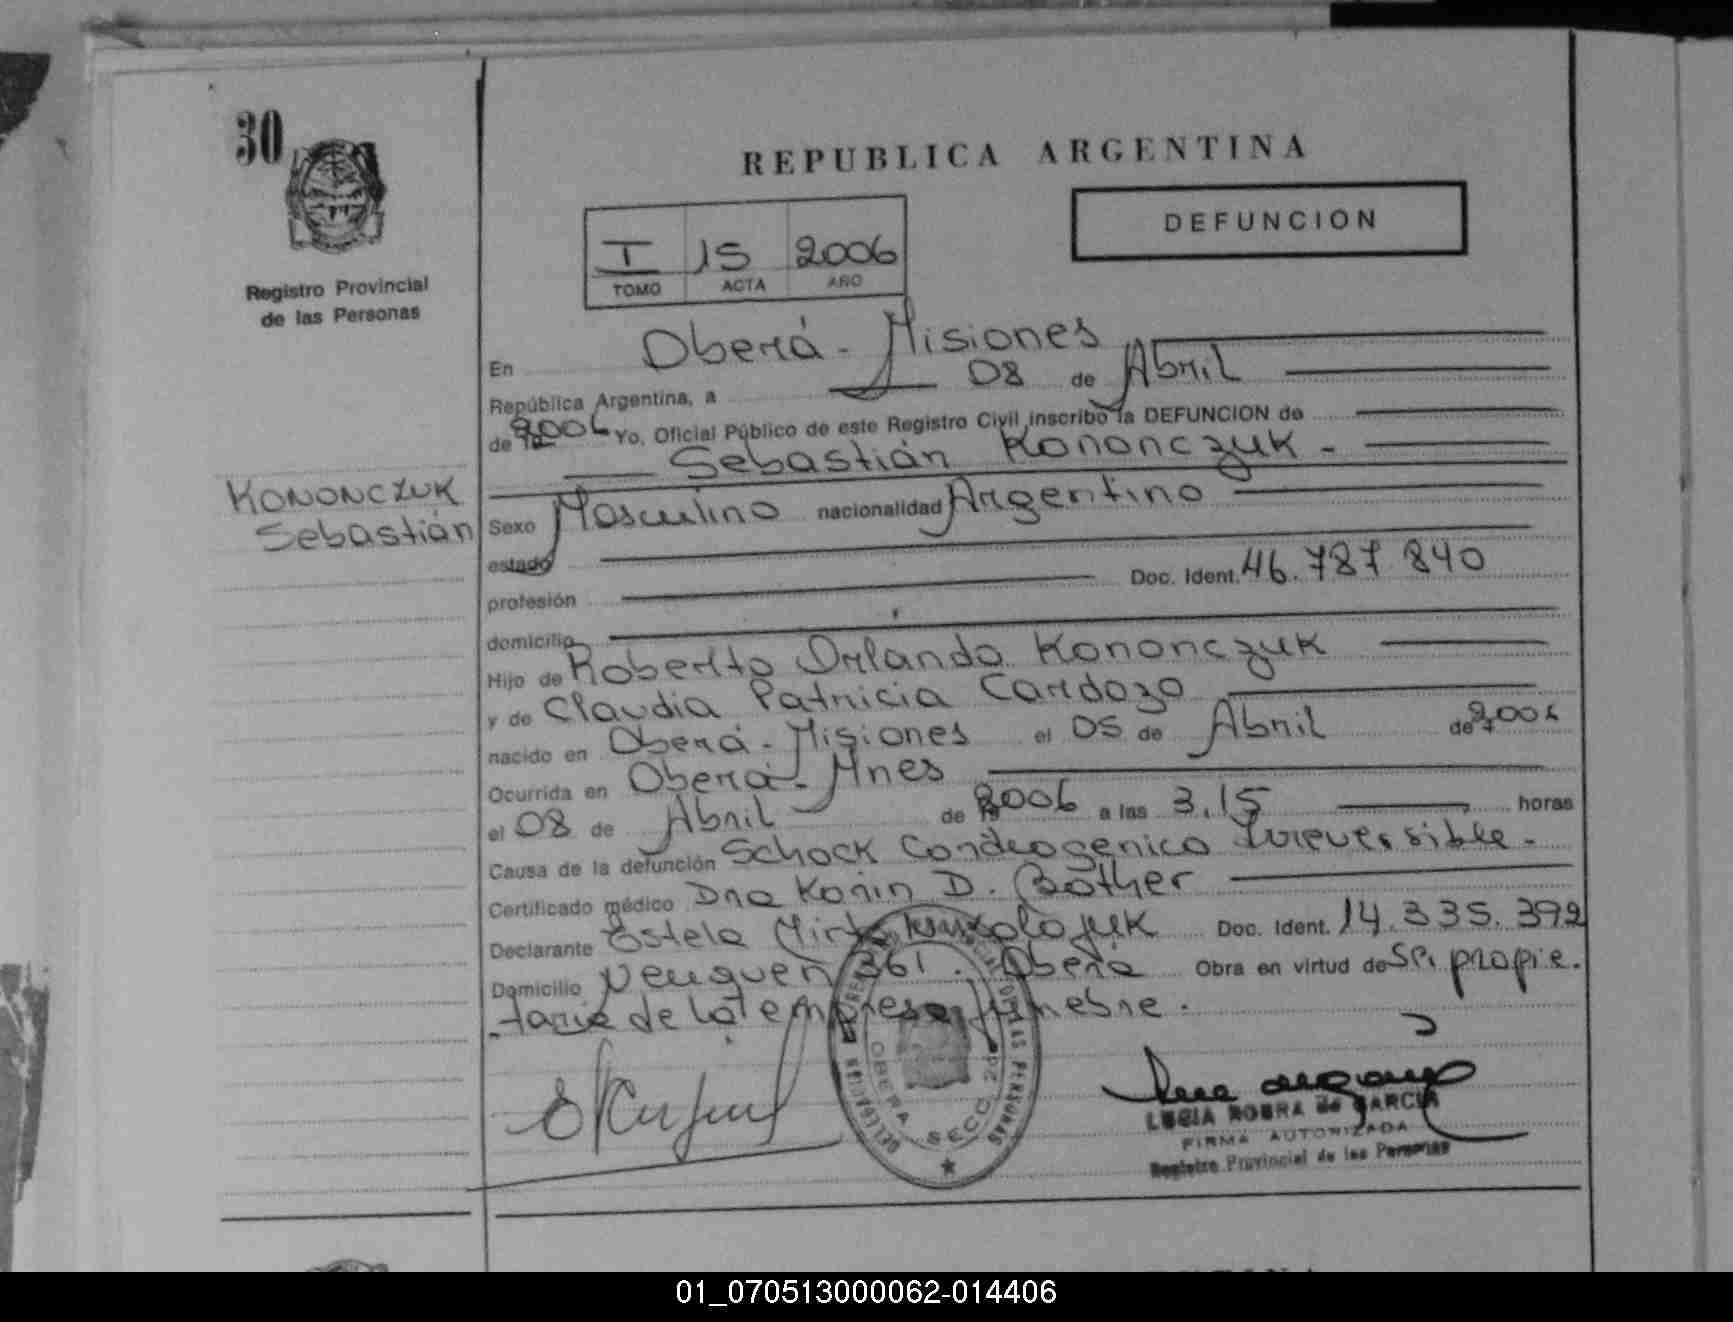 30
Registro Provincial
de las Personas
REPUBLICA ARGENTINA
DEFUNCION
I 15 2006
TOMO ACTA AÑO
En Oberá - Misiones
República Argentina, a 08 de Abril
de 2006 Yo, Oficial Público de este Registro Civil inscribo la DEFUNCION de
Sebastián Kononczuk -
KONONCZUK
Sebastián
Sexo Masculino nacionalidad Argentino
estado
profesión Doc. Ident. 46.787.840
domicilio
Hijo de Roberto Orlando Kononczuk
y de Claudia Patricia Cardozo
nacido en Oberá - Misiones el 05 de Abril de 2006
Ocurrida en Oberá - Mnes
el 08 de Abril de 2006 a las 3.15 horas
Causa de la defunción Schock Cardeogenico Irreversible -
Certificado médico Dra Karin D. Bother
Declarante Estela Mirta Doc. Ident. 14.335.392
Domicilio Neuquen 361. Oberá Obra en virtud de Sr. propie.
- taria de la empresa funebre.
OBERA SECC. 2da
LUCIA ROBRA de GARCIA
FIRMA AUTORIZADA
Registro Provincial de las Personas
01_070513000062-014406